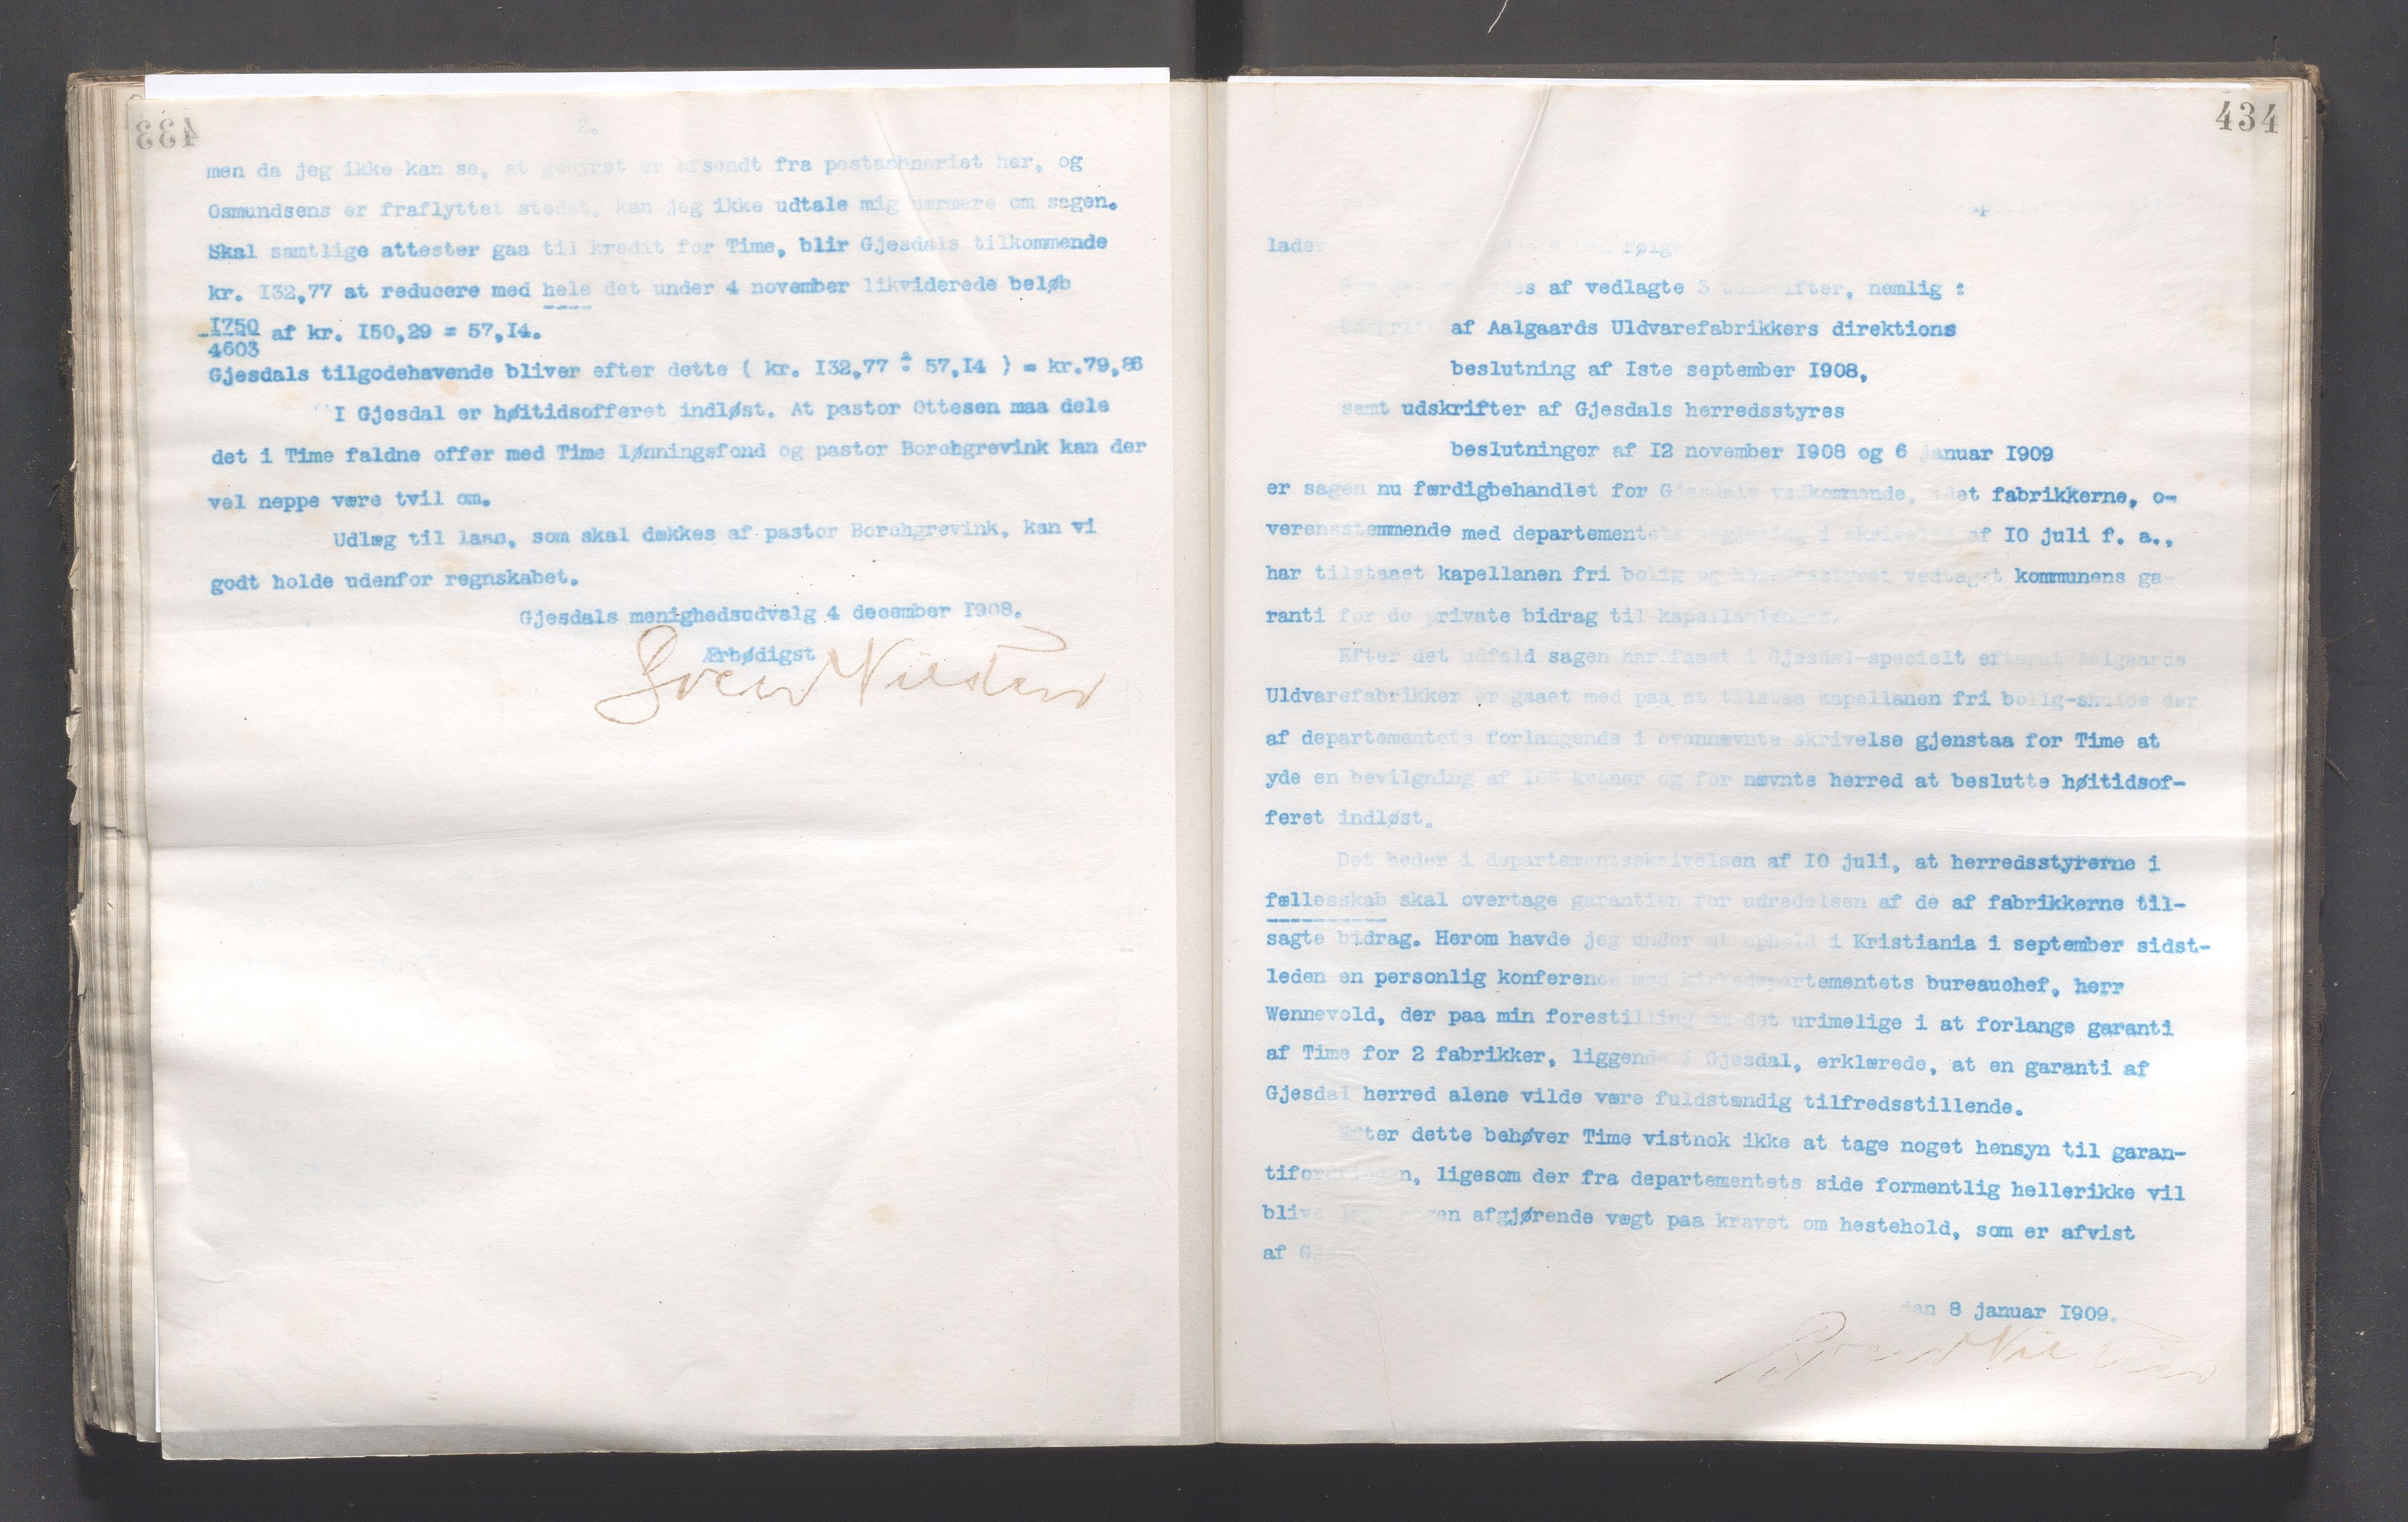 433
2.
men da jeg ikke kan se, at gebyret er afsendt fra postaabneriet her, og
Osmundsens er fraflyttet stedet, kan jeg ikke udtale mig nærmere om sagen.
Skal samtlige attester gaa til kredit for Time, blir Gjesdals tilkommende
kr. I32,77 at reducere med hele det under 4 november likviderede beløb
1750
4603 af kr. I50,29 = 57,I4.
Gjesdals tilgodehavende bliver efter dette ( kr. I32,77 ÷ 57,I4 ) = kr.79,86
I Gjesdal er høitidsofferet indløst. At pastor Ottesen maa dele
det i Time faldne offer med Time lønningsfond og pastor Borchgrevink kan der
vel neppe være tvil om.
Udlæg til laan, som skal dækkes af pastor Borchgrevink, kan vi
godt holde udenfor regnskabet.
Gjesdals menighedsudvalg 4 december I908.
Ærbødigst
434
af vedlagte 3 udskrifter, nemlig :
af Aalgaards Uldvarefabrikkers direktions
beslutning af Iste september I908,
samt udskrifter af Gjesdals herredsstyres
beslutninger af I2 november I908 og 6 januar I909
er sagen nu færdigbehandlet for Gjesdals vedkommende, idet fabrikkerne, o-
verensstemmende med departementets skrivelse af IO juli f. a.,
har tilstaaet kapellanen fri bolig og herredsstyret vedtaget kommunens ga-
ranti for de private bidrag til kapellanlønnen.
Efter det udfald sagen har faaet i Gjesdal-specielt efterat Aalgaards
Uldvarefabrikker er gaaet med paa at tilstaa kapellanen fri bolig-skulde der
af departementets forlangende i ovennævnte skrivelse gjenstaa for Time at
yde en bevilgning af kroner og for nævnte herred at beslutte høitidsof-
feret indløst.
Det heder i departementsskrivelsen af IO juli, at herredsstyrerne i
fællesskab skal overtage garantien for udredelsen af de af fabrikkerne til-
sagte bidrag. Herom havde jeg under et ophold i Kristiania i september sidst-
leden en personlig konference med kirkedepartementets bureauchef, herr
Wennevold, der paa min forestilling om det urimelige i at forlange garanti
af Time for 2 fabrikker, liggende i Gjesdal, erklærede, at en garanti af
Gjesdal herred alene vilde være fuldstændig tilfredsstillende.
Efter dette behøver Time vistnok ikke at tage noget hensyn til garan-
tifordringen, ligesom der fra departementets side formentlig hellerikke vil
blive afgjørende vægt paa kravet om hestehold, som er afvist
af
den 8 januar I909.